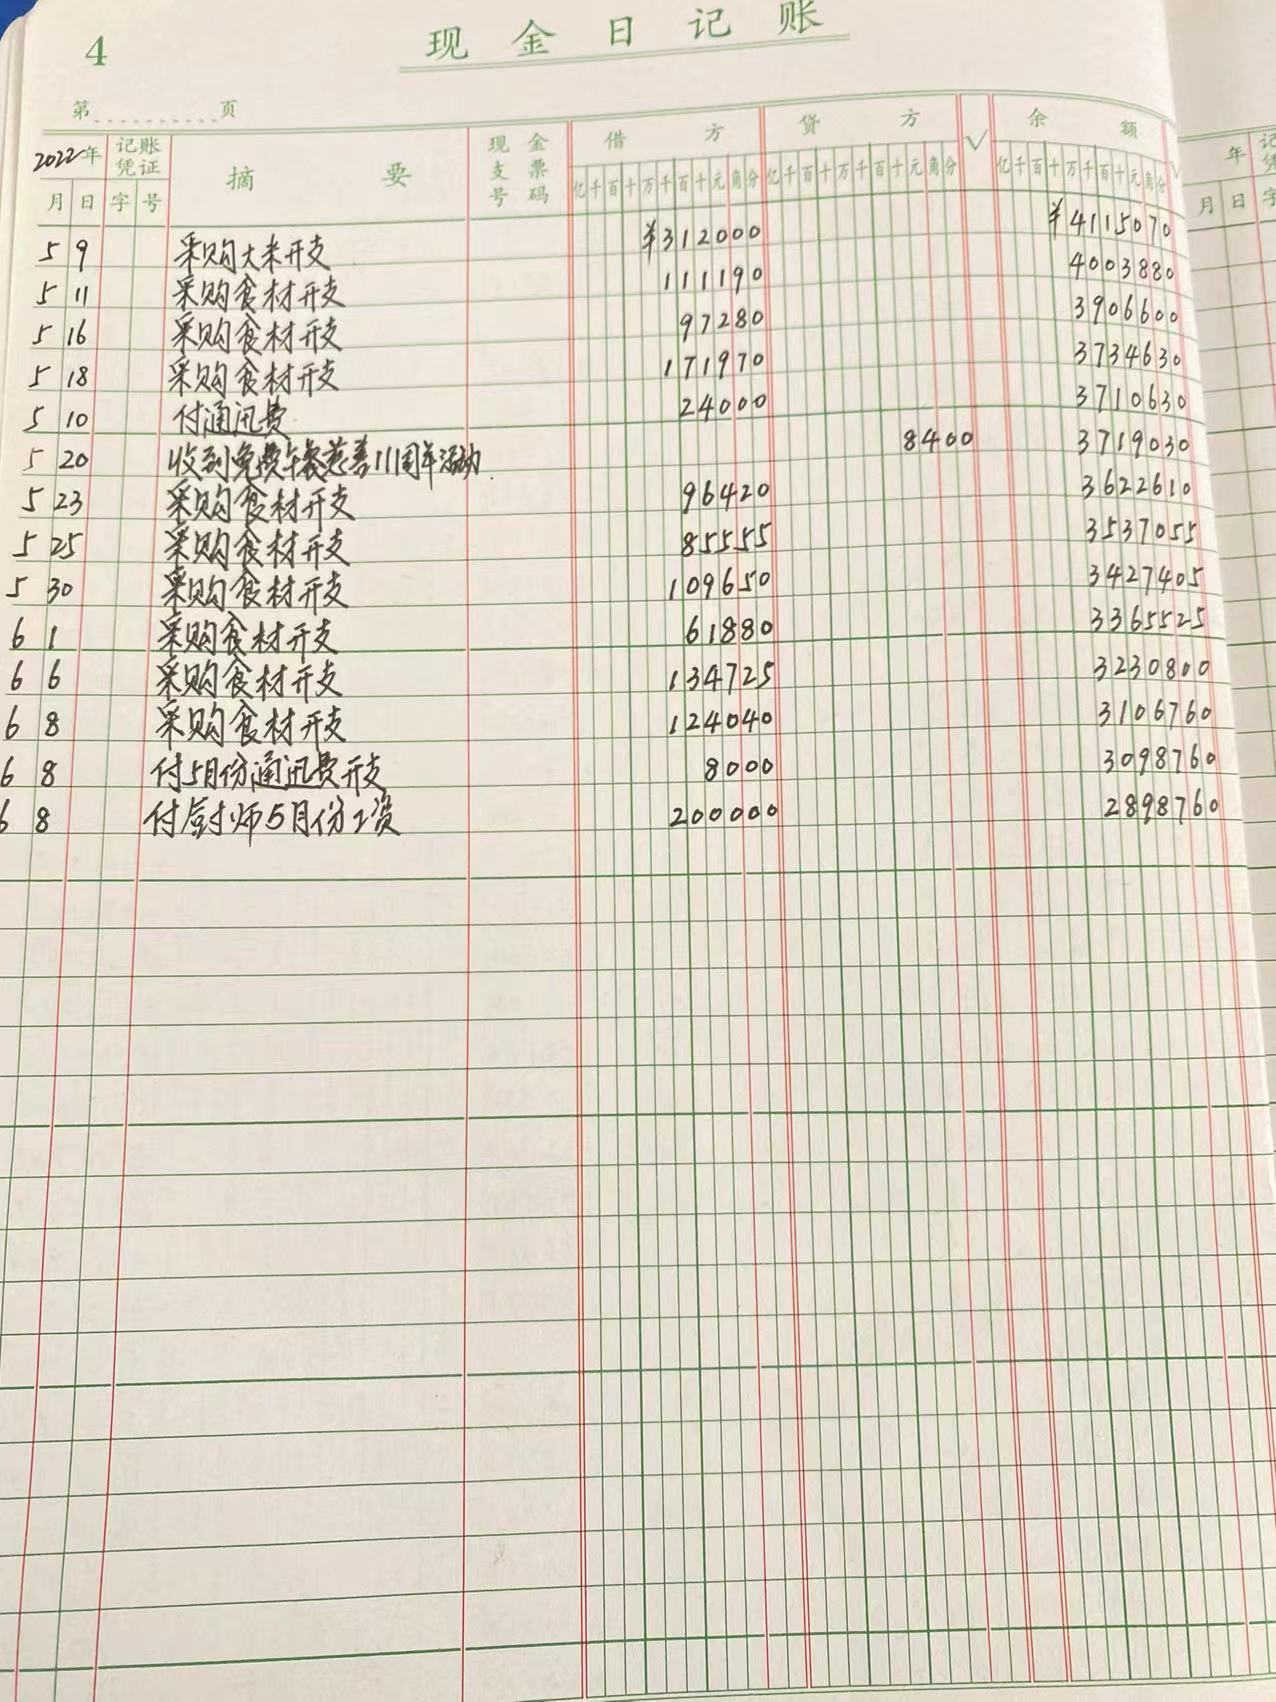 4
现金日记账
第 页
2022年 记账凭证 摘要 现金支票号码 借方 贷方 √ 余额 √
月 日 字 号 亿千百十万千百十元角分 亿千百十万千百十元角分 亿千百十万千百十元角分
5 9 采购大米开支 ¥312000 ¥4115070
5 11 采购食材开支 111190 4003880
5 16 采购食材开支 97280 3906600
5 18 采购食材开支 171970 3734630
5 10 付通讯费 24000 3710630
5 20 收到免费午餐慈善111周年活动 8400 3719030
5 23 采购食材开支 96420 3622610
5 25 采购食材开支 85555 3537055
5 30 采购食材开支 109650 3427405
6 1 采购食材开支 61880 3365525
6 6 采购食材开支 134725 3230800
6 8 采购食材开支 124040 3106760
6 8 付5月份通讯费开支 8000 3098760
6 8 付厨师5月份工资 200000 2898760
年
月 日 字